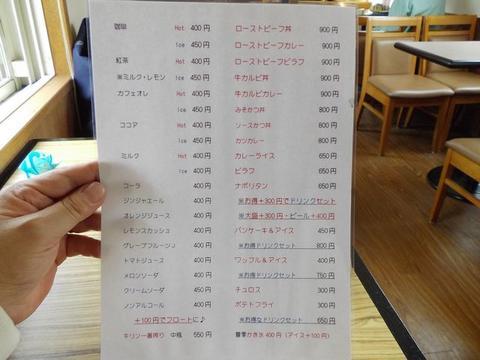 珈琲 Hot 400円 ローストビーフ丼 900円
Ice 450円 ローストビーフカレー 900円
紅茶 Hot 400円 ローストビーフピラフ 900円
※ミルク・レモン Ice 450円 牛カルビ丼 900円
カフェオレ Hot 400円 牛カルビカレー 900円
Ice 450円 みそかつ丼 800円
ココア Hot 400円 ソースかつ丼 800円
Ice 450円 カツカレー 800円
ミルク Hot 400円 カレーライス 650円
Ice 400円 ピラフ 650円
コーラ 400円 ナポリタン 650円
ジンジャエール 400円 ※お得+300円でドリンクセット
オレンジジュース 400円 ※大盛+300円・ビール+400円
レモンスカッシュ 400円 パンケーキ&アイス 450円
グレープフルーツJ 400円 ※お得ドリンクセット 800円
トマトジュース 400円 ワッフル&アイス 400円
メロンソーダ 400円 ※お得ドリンクセット 750円
クリームソーダ 450円 チュロス 300円
ノンアルコール 400円 ポテトフライ 300円
+100円でフロートに♪ ※お得なドリンクセット 650円
キリン一番搾り 中瓶 550円 かき氷 400円 (アイス+100円)